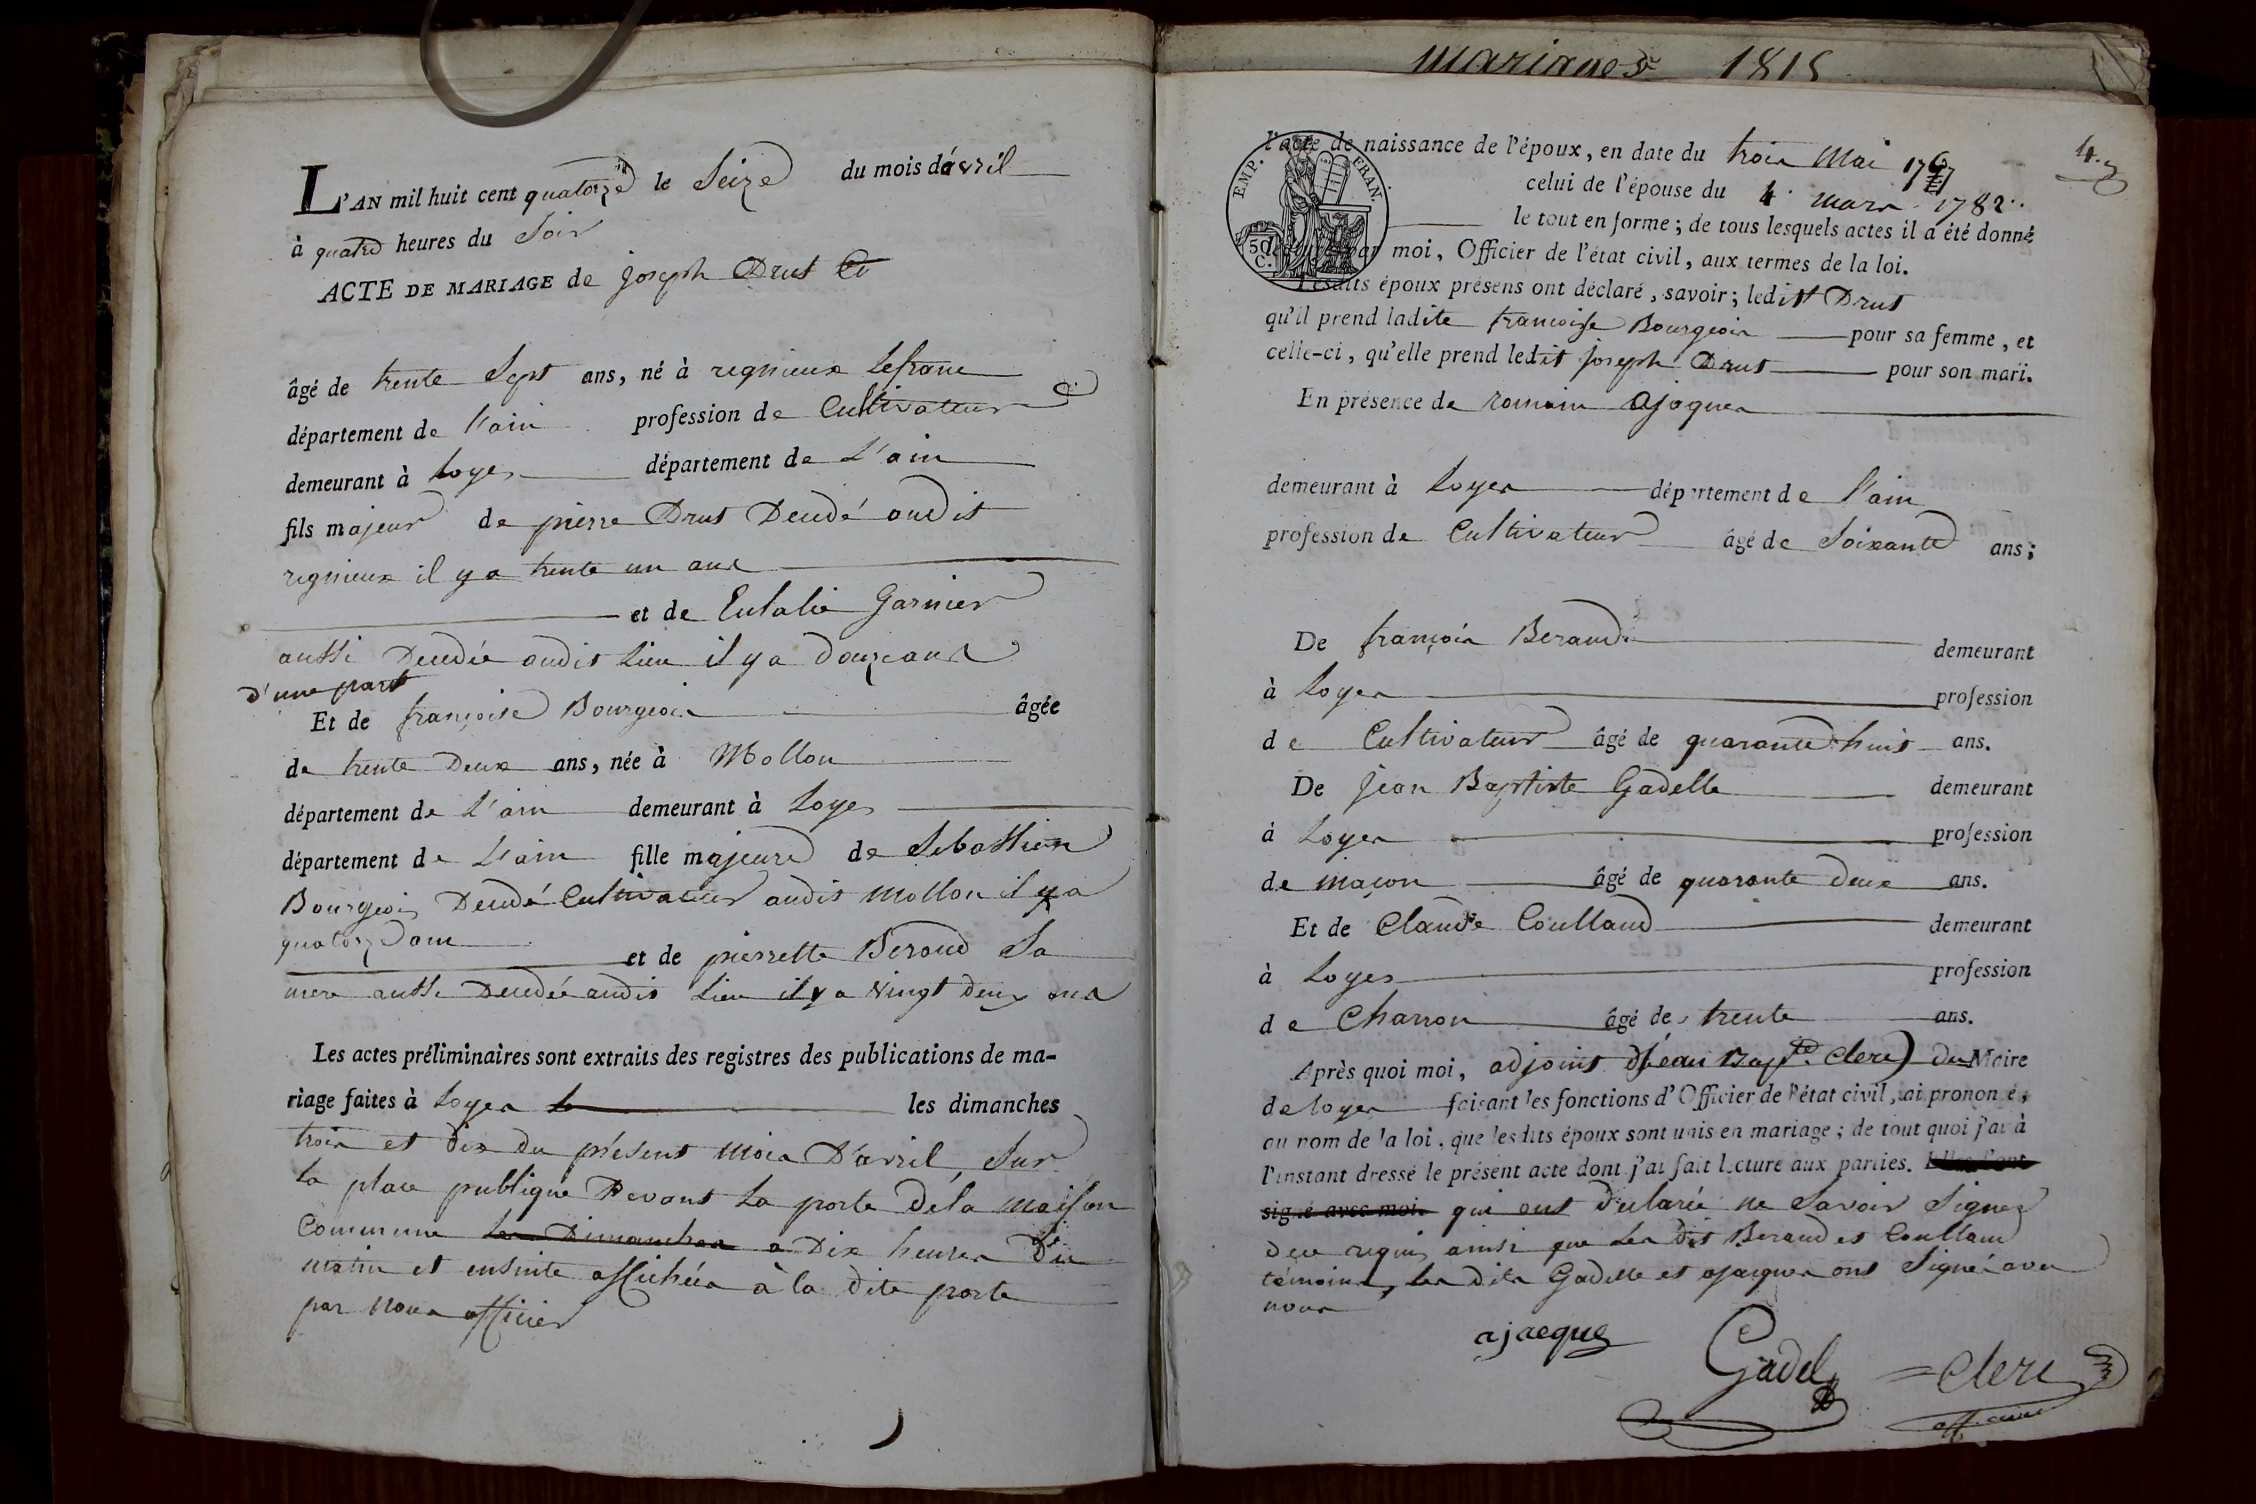 L'AN mil huit cent quatorze le Seize du mois d'avril
à quatre heures du Soir
ACTE DE MARIAGE de joseph Drut Et
âgé de trente Sept ans, né à rignieux Lefranc
département de l'ain profession de Cultivateur
demeurant à Loyes département de L'ain
fils majeur de pierre Drut Decedé audit
rignieux il y a trente un ans
et de Eulalie Garnier
aussi Decedée audit Lieu il y a douze ans
d'une part
Et de françoise Bourgeois âgée
de trente Deux ans, née à Mollon
département de L'ain demeurant à Loyes
département de L'ain fille majeure de Sebastien
Bourgeois Decedé Cultivateur audit Mollon il y a
quatorze ans
et de pierrette Beraud Sa
mere aussi Decedée audit Lieu il y a Vingt deux ans
Les actes préliminaires sont extraits des registres des publications de ma-
riage faites à Loyes les dimanches
trois et dix du présent mois D'avril, Sur
la place publique Devant La porte Dela maison
Commune Les Dimanches a Dix heures Du
matin et ensuite affichées à la dite porte
par Nous officier
mariages 1815
4.
l'acte de naissance de l'époux, en date du trois Mai
celui de l'épouse du 4 mars 1782
EMP. FRAN.
50 C.
le tout en forme; de tous lesquels actes il a été donné
par moi, Officier de l'état civil, aux termes de la loi.
Lesdits époux présens ont déclaré, savoir; ledit Drut
qu'il prend ladite francoise Bourgeois pour sa femme, et
celle-ci, qu'elle prend ledit joseph Drut pour son mari.
En présence de romain ajaques
demeurant à Loyes département de l'ain
profession de Cultivateur âgé de Soixante ans;
De françois Beraud demeurant
à Loyes profession
de Cultivateur âgé de quarante huit ans.
De jean Baptiste Gadelle demeurant
à Loyes profession
de maçon âgé de quarante deux ans.
Et de Claude Coulland demeurant
à Loyes profession
de Charron âgé de trente ans.
Après quoi moi, adjoint (jean Bapte. Clerc) du Maire
de loyes faisant les fonctions d'Officier de l'état civil, ai prononcé,
au nom de la loi, que lesdits époux sont unis en mariage; de tout quoi j'ai à
l'instant dressé le présent acte dont j'ai fait lecture aux parties. Elles l'ont
signé avec moi qui ont declarée ne Savoir Signer
De ce requis ainsi que Les dit Beraud et Coulland
témoins, les dits Gadelle et ajacques ont Signé avec
nous
ajacque Gadel Clerc
officier